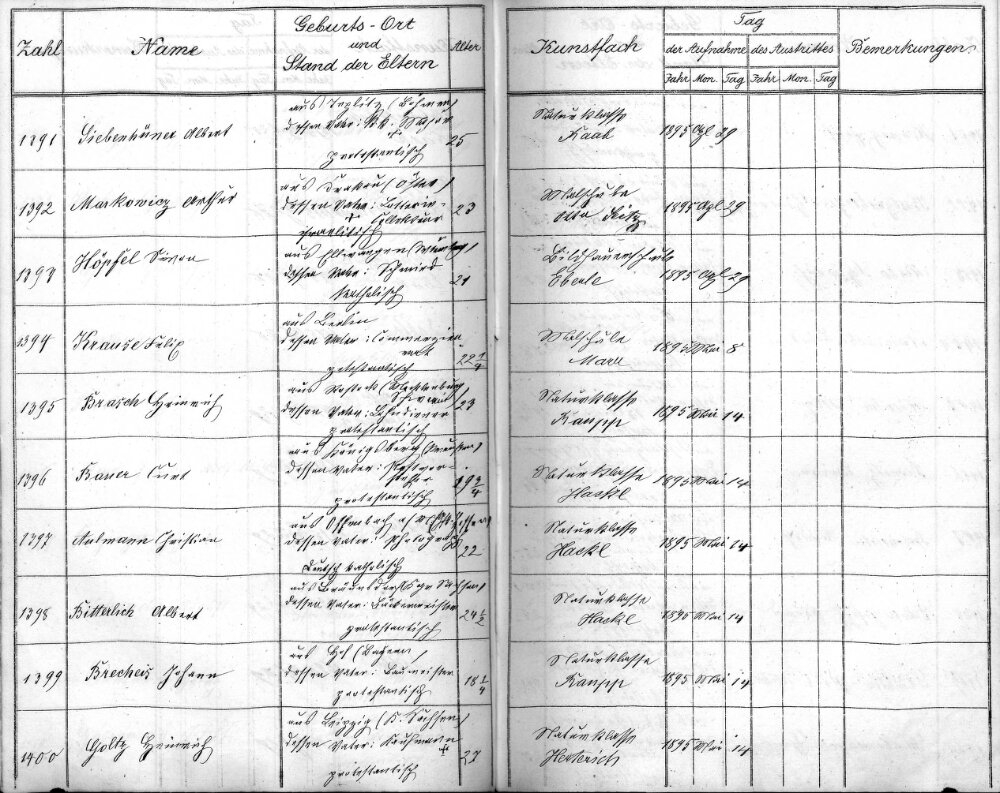 Zahl Name Geburts-Ort und Stand der Eltern Alter Kunstfach Tag der Aufnahme des Austrittes Bemerkungen
Jahr Mon. Tag Jahr Mon. Tag
1391 Siebenhüner Albert aus Teplitz (Böhmen) 25 Naturklasse 1895 Apl 29
dessen Vater: Major Raab
protestantisch
1392 Markowicz Arthur aus Krakau 23 Malschule 1895 Apl 29
dessen Vater: Lotterie-
Collekteur
israelitisch
1393 Höpfel aus Ellwangen 21 Bildhauerschule 1895 Apl 29
dessen Vater: Schmied Eberle
katholisch
1394 Krause Felix aus Berlin 22 1/4 Malschule 1895 Mai 8
dessen Vater: Commerzien- Marr
rat
protestantisch
1395 Brasch Heinrich aus Rostock (Mecklenburg 23 Naturklasse 1895 Mai 14
dessen Vater:
protestantisch
1396 Bauer Curt aus Königsberg (Preussen) 19 3/4 Naturklasse 1895 Mai 14
dessen Vater: Postvor- Hackl
steher
protestantisch
1397 Aulmann Christian aus Offenbach a/M 22 Naturklasse 1895 Mai 14
dessen Vater: Hackl
Deutsch katholisch
1398 Bitterlich Albert aus Bräunsdorf 24 1/2 Naturklasse 1895 Mai 14
dessen Vater: Bäckermeister Hackl
protestantisch
1399 Brecheis Johann aus Hof (Bayern) 18 1/4 Naturklasse 1895 Mai 14
dessen Vater: Baumeister
protestantisch
1400 Goltz Heinrich aus Leipzig (K. Sachsen) 27 Naturklasse 1895 Mai 14
dessen Vater: Kaufmann + Herterich
protestantisch